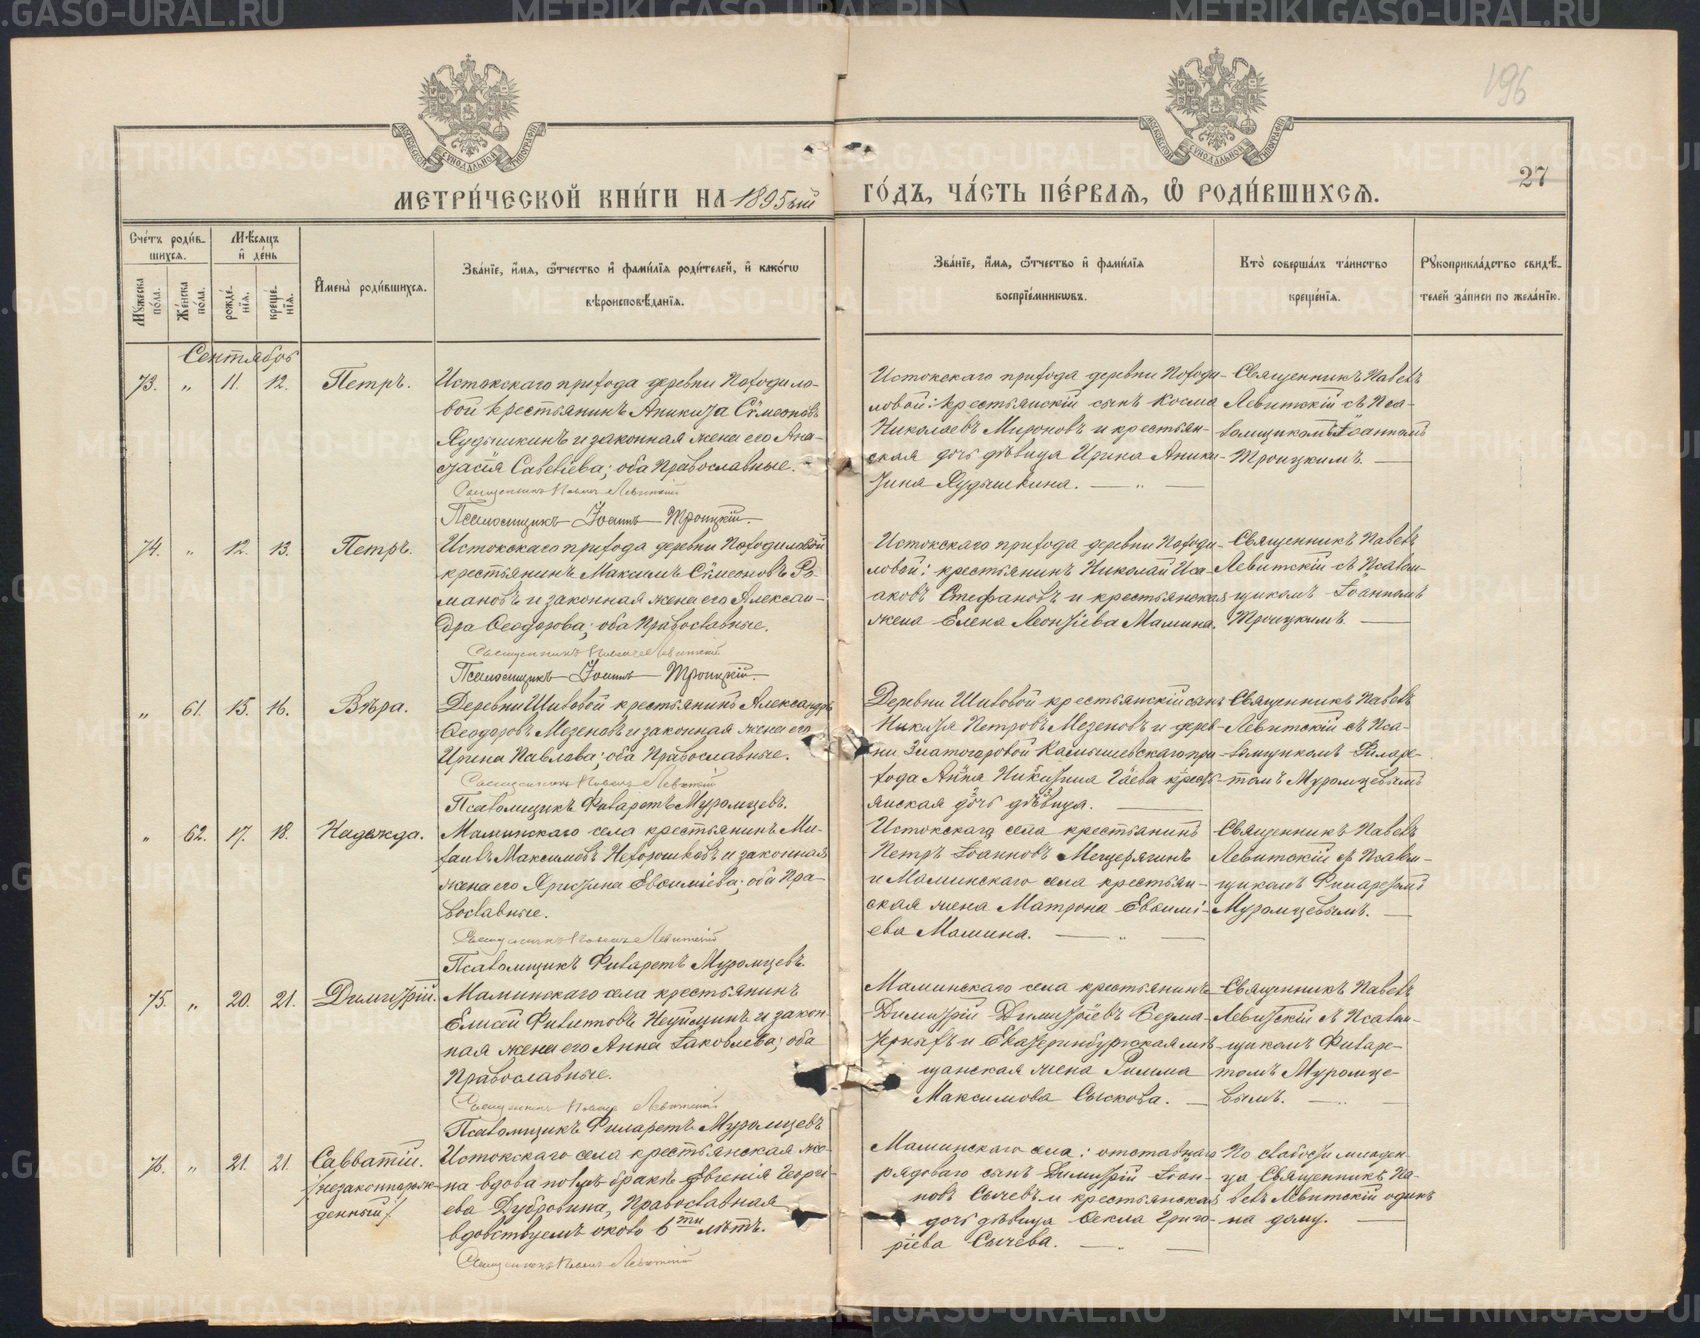 METRIKI.GASO-URAL.RU
196
27
МЕТРИ́ЧЕСКОЙ КНИ́ГИ НА 1895ый ГО́ДЪ, ЧА́СТЬ ПЕ́РВАѦ, Ѽ РОДИ́ВШИХСѦ.
Сче́тъ роди́в-
шихсѧ.
Мꙋ́жеска по́ла.
Же́нска по́ла.
Мѣ́сѧцъ
и҆ де́нь
рожде́-
нїѧ.
креще́-
нїѧ.
И҆мена̀ роди́вшихсѧ.
Зва́нїе, и҆́мѧ, ѻ҆́тчество и҆ фами́лїѧ роди́телей, и҆ како́гѡ
вѣроисповѣ́данїѧ.
Зва́нїе, и҆́мѧ, ѻ҆́тчество и҆ фами́лїѧ
воспрїе́мникѡвъ.
Кто̀ соверша́лъ та́инство
креще́нїѧ.
Рꙋкоприкла́дство свидѣ́-
телей за́писи по жела́нїю.
Сентябрь
73. „ 11. 12. Петръ.
Истокскаго прихода деревни Походило-
вой крестьянинъ Аникита Сѵмеоновъ
Худышкинъ и законная жена его Ана-
стасія Савельева; оба Православные.
Священникъ Павелъ Левитскій
Псаломщикъ Іоаннъ Троицкій.
Истокскаго прихода деревни Походи-
ловой: крестьянскій сынъ Косма
Николаевъ Мироновъ и крестьян-
ская дочь дѣвица Ирина Аники-
тина Худышкина.
Священникъ Павелъ
Левитскій съ Пса-
ломщикомъ Іоанномъ
Троицкимъ.
74. „ 12. 13. Петръ.
Истокскаго прихода деревни Походиловой
крестьянинъ Максимъ Сѵмеоновъ Ро-
мановъ и законная жена его Алексан-
дра Ѳеодорова; оба Православные.
Священникъ Павелъ Левитскій
Псаломщикъ Іоаннъ Троицкій.
Истокскаго прихода деревни Походи-
ловой; крестьянинъ Николай Иса-
аковъ Стефановъ и крестьянская
жена Елена Леонтіева Мамина.
Священникъ Павелъ
Левитскій съ Псалом-
щикомъ Іоанномъ
Троицкимъ.
„ 61. 15. 16. Вѣра.
Деревни Шиловой крестьянинъ Александръ
Ѳеодоровъ Мезеновъ и законная жена его
Ирина Павлова; оба Православные.
Священникъ Павелъ Левитскій
Псаломщикъ Филаретъ Муромцевъ.
Деревни Шиловой крестьянскій сынъ
Никита Петровъ Мезеновъ и дерев-
ни Златогоровой Камышевскаго при-
хода Анна Никитина Гаева кресть-
янская дочь дѣвица.
Священникъ Павелъ
Левитскій съ Пса-
ломщикомъ Филаре-
томъ Муромцевымъ
„ 62. 17. 18. Надежда.
Маминскаго села крестьянинъ Ми-
хаилъ Максимовъ Нехорошковъ и законная
жена его Христина Евѳиміева; оба Пра-
вославные.
Священникъ Павелъ Левитскій
Псаломщикъ Филаретъ Муромцевъ.
Истокскаго села крестьянинъ
Петръ Іоанновъ Мещерягинъ
и Маминскаго села крестьян-
ская жена Матрона Евѳимі-
ева Мамина.
Священникъ Павелъ
Левитскій съ Псалом-
щикомъ Филаретомъ
Муромцевымъ.
75. „ 20. 21. Димитрій.
Маминскаго села крестьянинъ
Елисей Филипповъ Неуйминъ и закон-
ная жена его Анна Іаковлева; оба
Православные.
Священникъ Павелъ Левитскій
Псаломщикъ Филаретъ Муромцевъ
Маминскаго села крестьянинъ
Димитрій Димитріевъ Бедма-
терныхъ и Екатеринбургская мѣ-
щанская жена Римма
Максимова Сыскова.
Священникъ Павелъ
Левитскій съ Псалом-
щикомъ Филаре-
томъ Муромце-
вымъ.
76. „ 21. 21. Савватій.
/незаконнорож-
денный/.
Истокскаго села крестьянская же-
на вдова по 1мъ бракѣ Евгенія Георгі-
ева Дубровина, Православная,
вдовствуетъ около 6ти лѣтъ.
Священникъ Павелъ Левитскій
Маминскаго села: отставнаго
рядоваго сынъ Димитрій Іоан-
новъ Сычевъ и крестьянская
дочь дѣвица Ѳекла Григо-
ріева Сычева.
По слабости младен-
ца Священникъ Па-
велъ Левитскій одинъ
на дому.